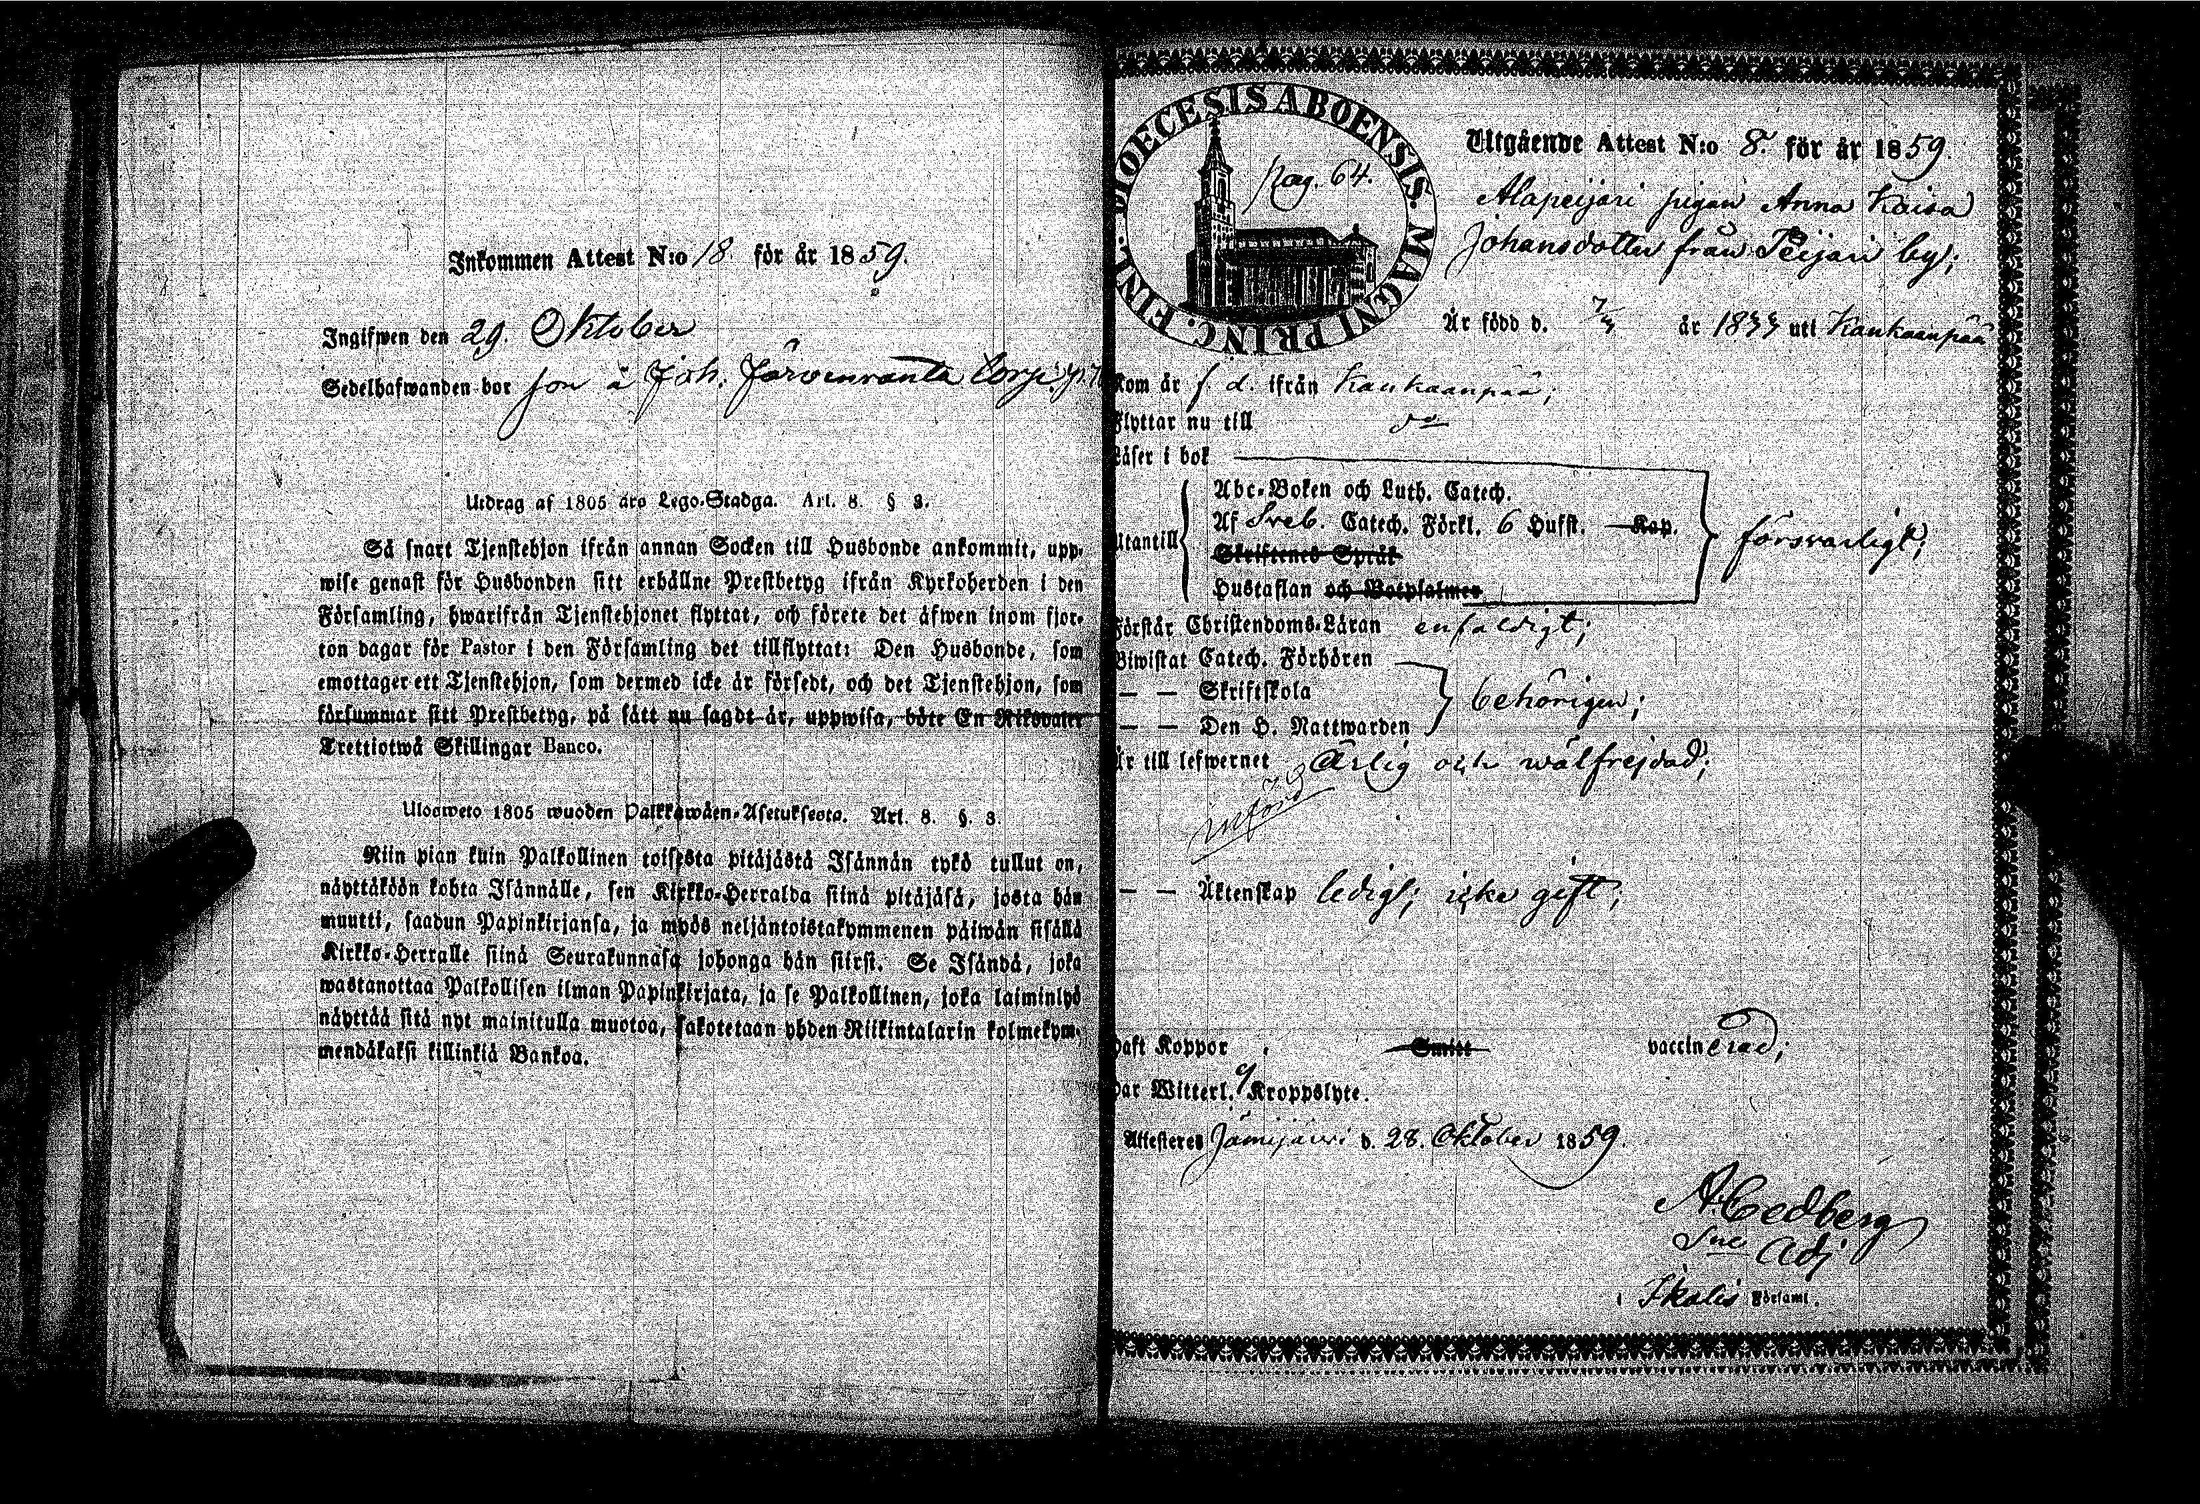 Inkommen Attest N:o 18. för år 1859.
Ingifwen den 29. Oktober
Sedelhafwanden bor hos å Joh. Järvenranta torp.
Utdrag af 1805 års Lego-Stadga. Art. 8. § 3.
Så snart Tjenstehjon ifrån annan Socken till Husbonde ankommit, upp-
wise genast för Husbonden sitt erhållne Prestbetyg ifrån Kyrkoherden i den
Församling, hwarifrån Tjenstehjonet flyttat, och förete det äfwen inom fjor-
ton dagar för Pastor i den Församling det tillflyttat: Den Husbonde, som
emottager ett Tjenstehjon, som dermed icke är försedt, och det Tjenstehjon, som
försummar sitt Prestbetyg, på sätt nu sagdt är, uppwisa, böte En Riksdaler
Trettiotwå Skillingar Banco.
Ulosweto 1805 wuoden Palkkawäen-Asetuksesta. Art. 8. §. 3.
Niin pian kuin Palkollinen toisesta pitäjästä Isännän tykö tullut on,
näyttäköön kohta Isännälle, sen Kirkko-Herralda siinä pitäjäsä, josta hän
muutti, saadun Papinkirjansa, ja myös neljäntoistakymmenen päiwän sisällä
Kirkko-Herralle siinä Seurakunnasa johonga hän siirsi. Se Isändä, joka
wastanottaa Palkollisen ilman Papinkirjata, ja se Palkollinen, joka laiminlyö
näyttää sitä nyt mainitulla muotoa, sakotetaan yhden Riikintalarin kolmekym-
mendäkaksi killinkiä Bankoa.
DIOECESIS ABOENSIS. MAGNI PRINC. FINL.
Pag. 64.
Utgående Attest N:o 8. för år 1859.
Alapeijari pigan Anna Kaisa
Johansdotter från Peijari by;
Är född d. 7/4 år 1833 uti Kankaanpää
Kom år f. d. ifrån Kankaanpää;
Flyttar nu till do
Läser i bok
Utantill
Abc-Boken och Luth. Catech.
Af Sveb. Catech. Förkl. 6 Hufst. Kap.
Skriftenes Språk
Hustaflan och Botpsalmer
försvarligt;
Förstår Christendoms-Läran enfaldigt;
Biwistat Catech. Förhören
— — Skriftskola
— — Den H. Nattwarden
behörigen;
Är till lefwernet Ärlig och wälfrejdad;
införd
— — Äktenskap ledig; icke gift;
Haft Koppor Smitt vaccinerad;
Har Witterl. Kroppslyte.
Attesteres Jämijärvi d. 28. Oktober 1859.
A. Cedberg
Adj
i Ikalis Församl.